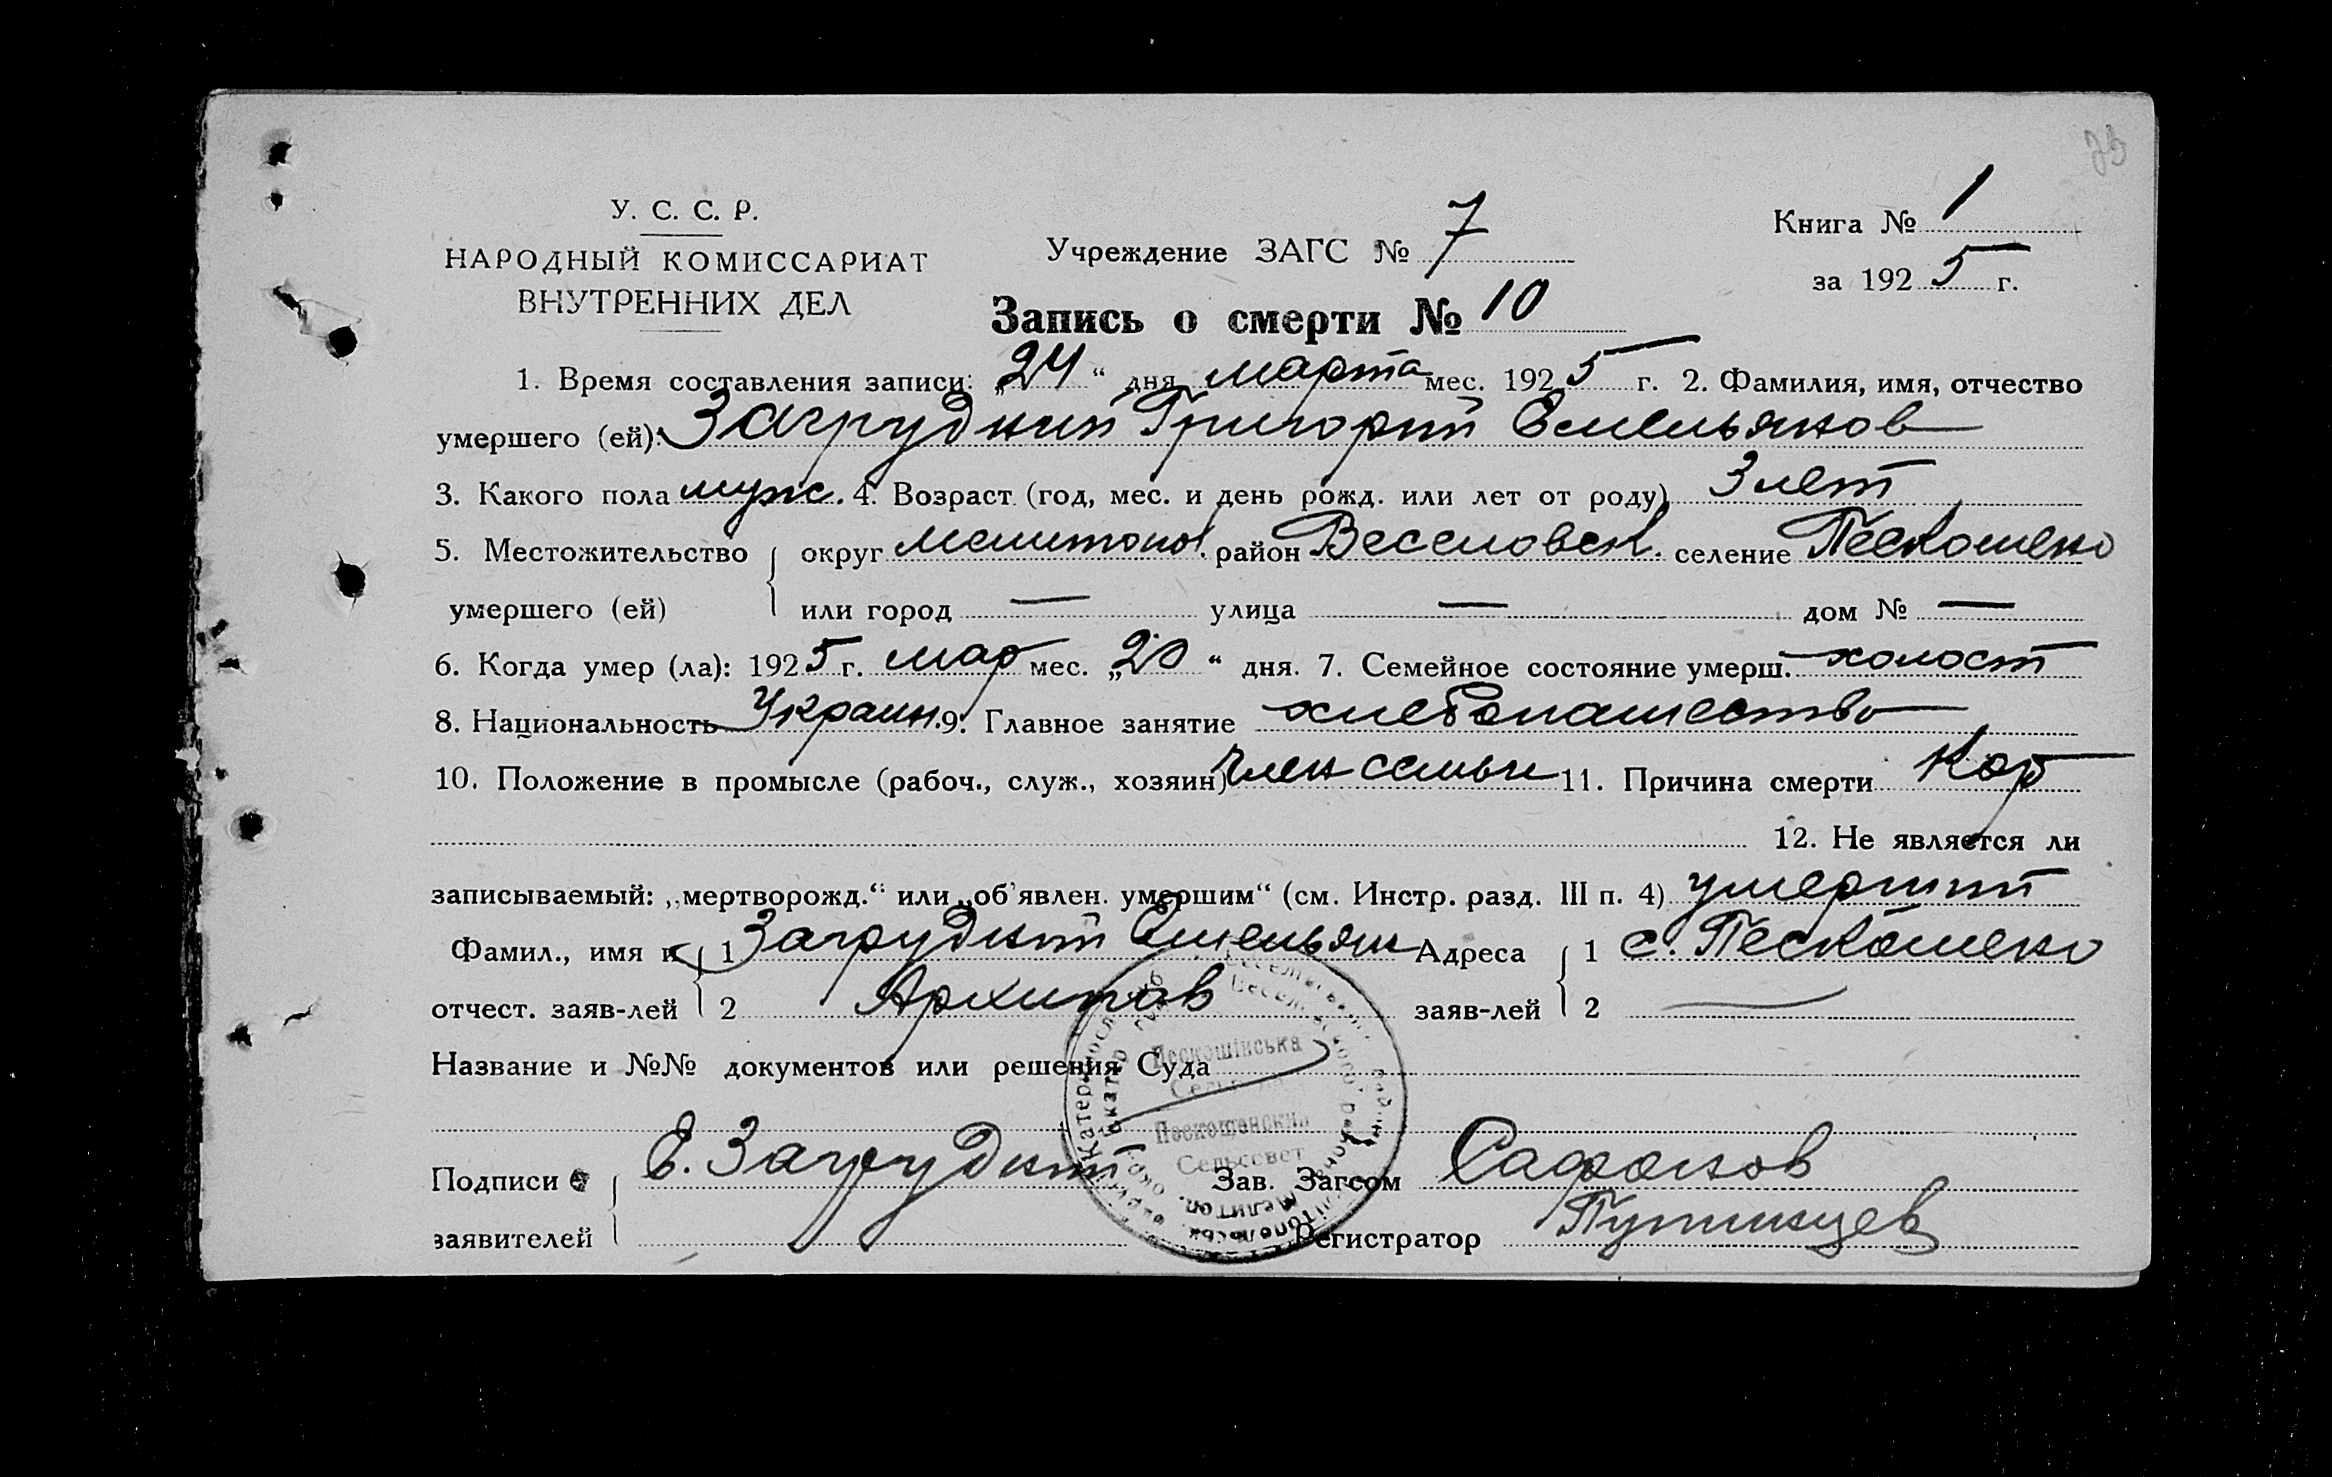 У. С. С. Р.
НАРОДНЫЙ КОМИССАРИАТ
ВНУТРЕННИХ ДЕЛ
Учреждение ЗАГС № 7
Книга № 1
за 192 5 г.
Запись о смерти № 10
1. Время составления записи: „24“ дня марта мес. 192 5 г. 2. Фамилия, имя, отчество
умершего (ей): Загрудний Григорий Емельянов
3. Какого пола муж. 4. Возраст (год, мес. и день рожд. или лет от роду) 3 лет
5. Местожительство округ Мелитопол. район Веселовск. селение Пескошено
умершего (ей) или город — улица — дом № —
6. Когда умер (ла): 192 5 г. мар мес. „20“ дня. 7. Семейное состояние умерш. холост
8. Национальность Украин. 9. Главное занятие хлебопашество
10. Положение в промысле (рабоч., служ., хозяин) член семьи 11. Причина смерти Кор
12. Не является ли
записываемый: „мертворожд.“ или „об'явлен. умершим“ (см. Инстр. разд. III п. 4) умерший
Фамил., имя и 1 Загрудний Емельян Адреса 1 с. Пескошено
отчест. заяв-лей 2 Архипов заяв-лей 2 —
Название и №№ документов или решения Суда
Пескошінська
Пескошенский
Сельсовет
Подписи Е. Загрудний Зав. Загсом Сафонов
заявителей Регистратор Путинцев